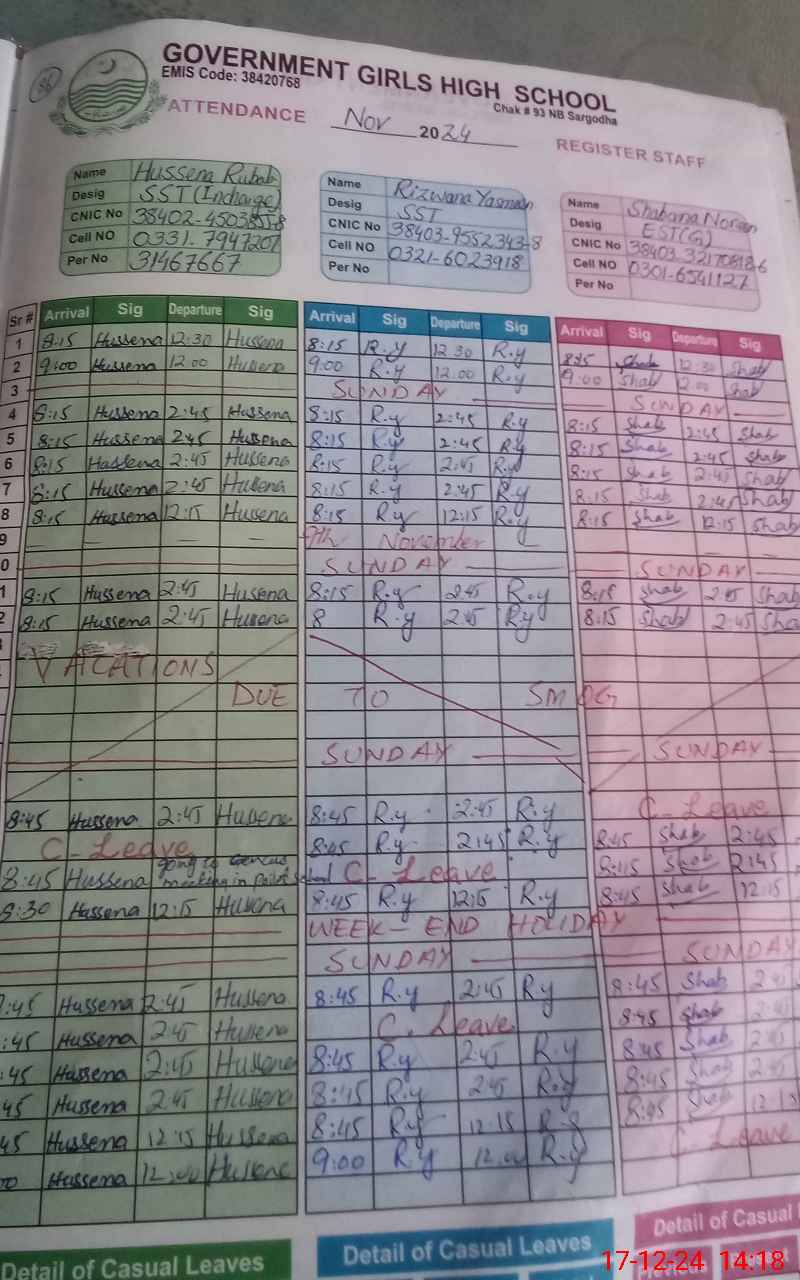 36
GOVERNMENT GIRLS HIGH SCHOOL
EMIS Code: 38420768
Chak # 93 NB Sargodha
ATTENDANCE Nov 2024 REGISTER STAFF
Name Hussena Rubab
Desig SST (Incharge)
CNIC No
Cell NO 0331-7947207
Per No 31467667
Name Rizwana Yasmeen
Desig SST
CNIC No 38403-9552343-8
Cell NO 0321-6023918
Per No
Name Shabana Noreen
Desig EST(G)
CNIC No 38403-3217081-6
Cell NO 0301-6541127
Per No
Sr # Arrival Sig Departure Sig Arrival Sig Departure Sig Arrival Sig Departure Sig
1 8:15 Hussena 12:30 Hussena 8:15 R.y 12 30 R.y 8:15 Shab 12:30 Shab
2 9:00 Hussena 12.00 Hussena 9:00 R.y 12.00 R.y 9:00 Shab 12.00 Shab
3 SUNDAY SUNDAY
4 8:15 Hussena 2:45 Hussena 8:15 R.y 2:45 R.y 8:15 Shab 2:45 Shab
5 8:15 Hussena 2:45 Hussena 8:15 R.y 2:45 R.y 8:15 Shab 2:45 Shab
6 8:15 Hussena 2:45 Hussena 8:15 R.y 2:45 R.y 8:15 Shab 2:45 Shab
7 8:15 Hussena 2:45 Hussena 8:15 R.y 2:45 R.y 8:15 Shab 2:45 Shab
8 8:15 Hussena 12:15 Hussena 8:15 R.y 12:15 R.y 8:15 Shab 12:15 Shab
9 9th November
0 SUNDAY SUNDAY
1 8:15 Hussena 2:45 Hussena 8:15 R.y 2:45 R.y 8:15 Shab 2:45 Shab
2 8:15 Hussena 2:45 Hussena 8 R.y 2:45 R.y 8:15 Shab 2:45 Sha
VACATIONS
DUE TO SMOG
SUNDAY SUNDAY
8:45 Hussena 2:45 Hussena 8:45 R.y 2:45 R.y C-Leave
C-Leave 8:45 R.y 2:45 R.y 8:45 Shab 2:45
8:45 Hussena going to meeting in Pilot School C-Leave 8:45 Shab 2:45
8:30 Hussena 12:15 Hussena 8:45 R.y 12:15 R.y 8:45 Shab 12:15
WEEK-END HOLIDAY
SUNDAY SUNDAY
:45 Hussena 2:45 Hussena 8:45 R.y 2:45 R.y 8:45 Shab 2:45
:45 Hussena 2:45 Hussena C.Leave 8:45 Shab 2:45
:45 Hussena 2:45 Hussena 8:45 R.y 2:45 R.y 8:45 Shab 2:45
45 Hussena 2:45 Hussena 8:45 R.y 2:45 R.y 8:45 Shab 2:45
45 Hussena 12:15 Hussena 8:45 R.y 12:15 R.y 8:45 Shab 12:15
Hussena 12:00 Hussena 9:00 R.y 12.00 R.y C-Leave
Detail of Casual Leaves Detail of Casual Leaves Detail of Casual
17-12-24 14:18